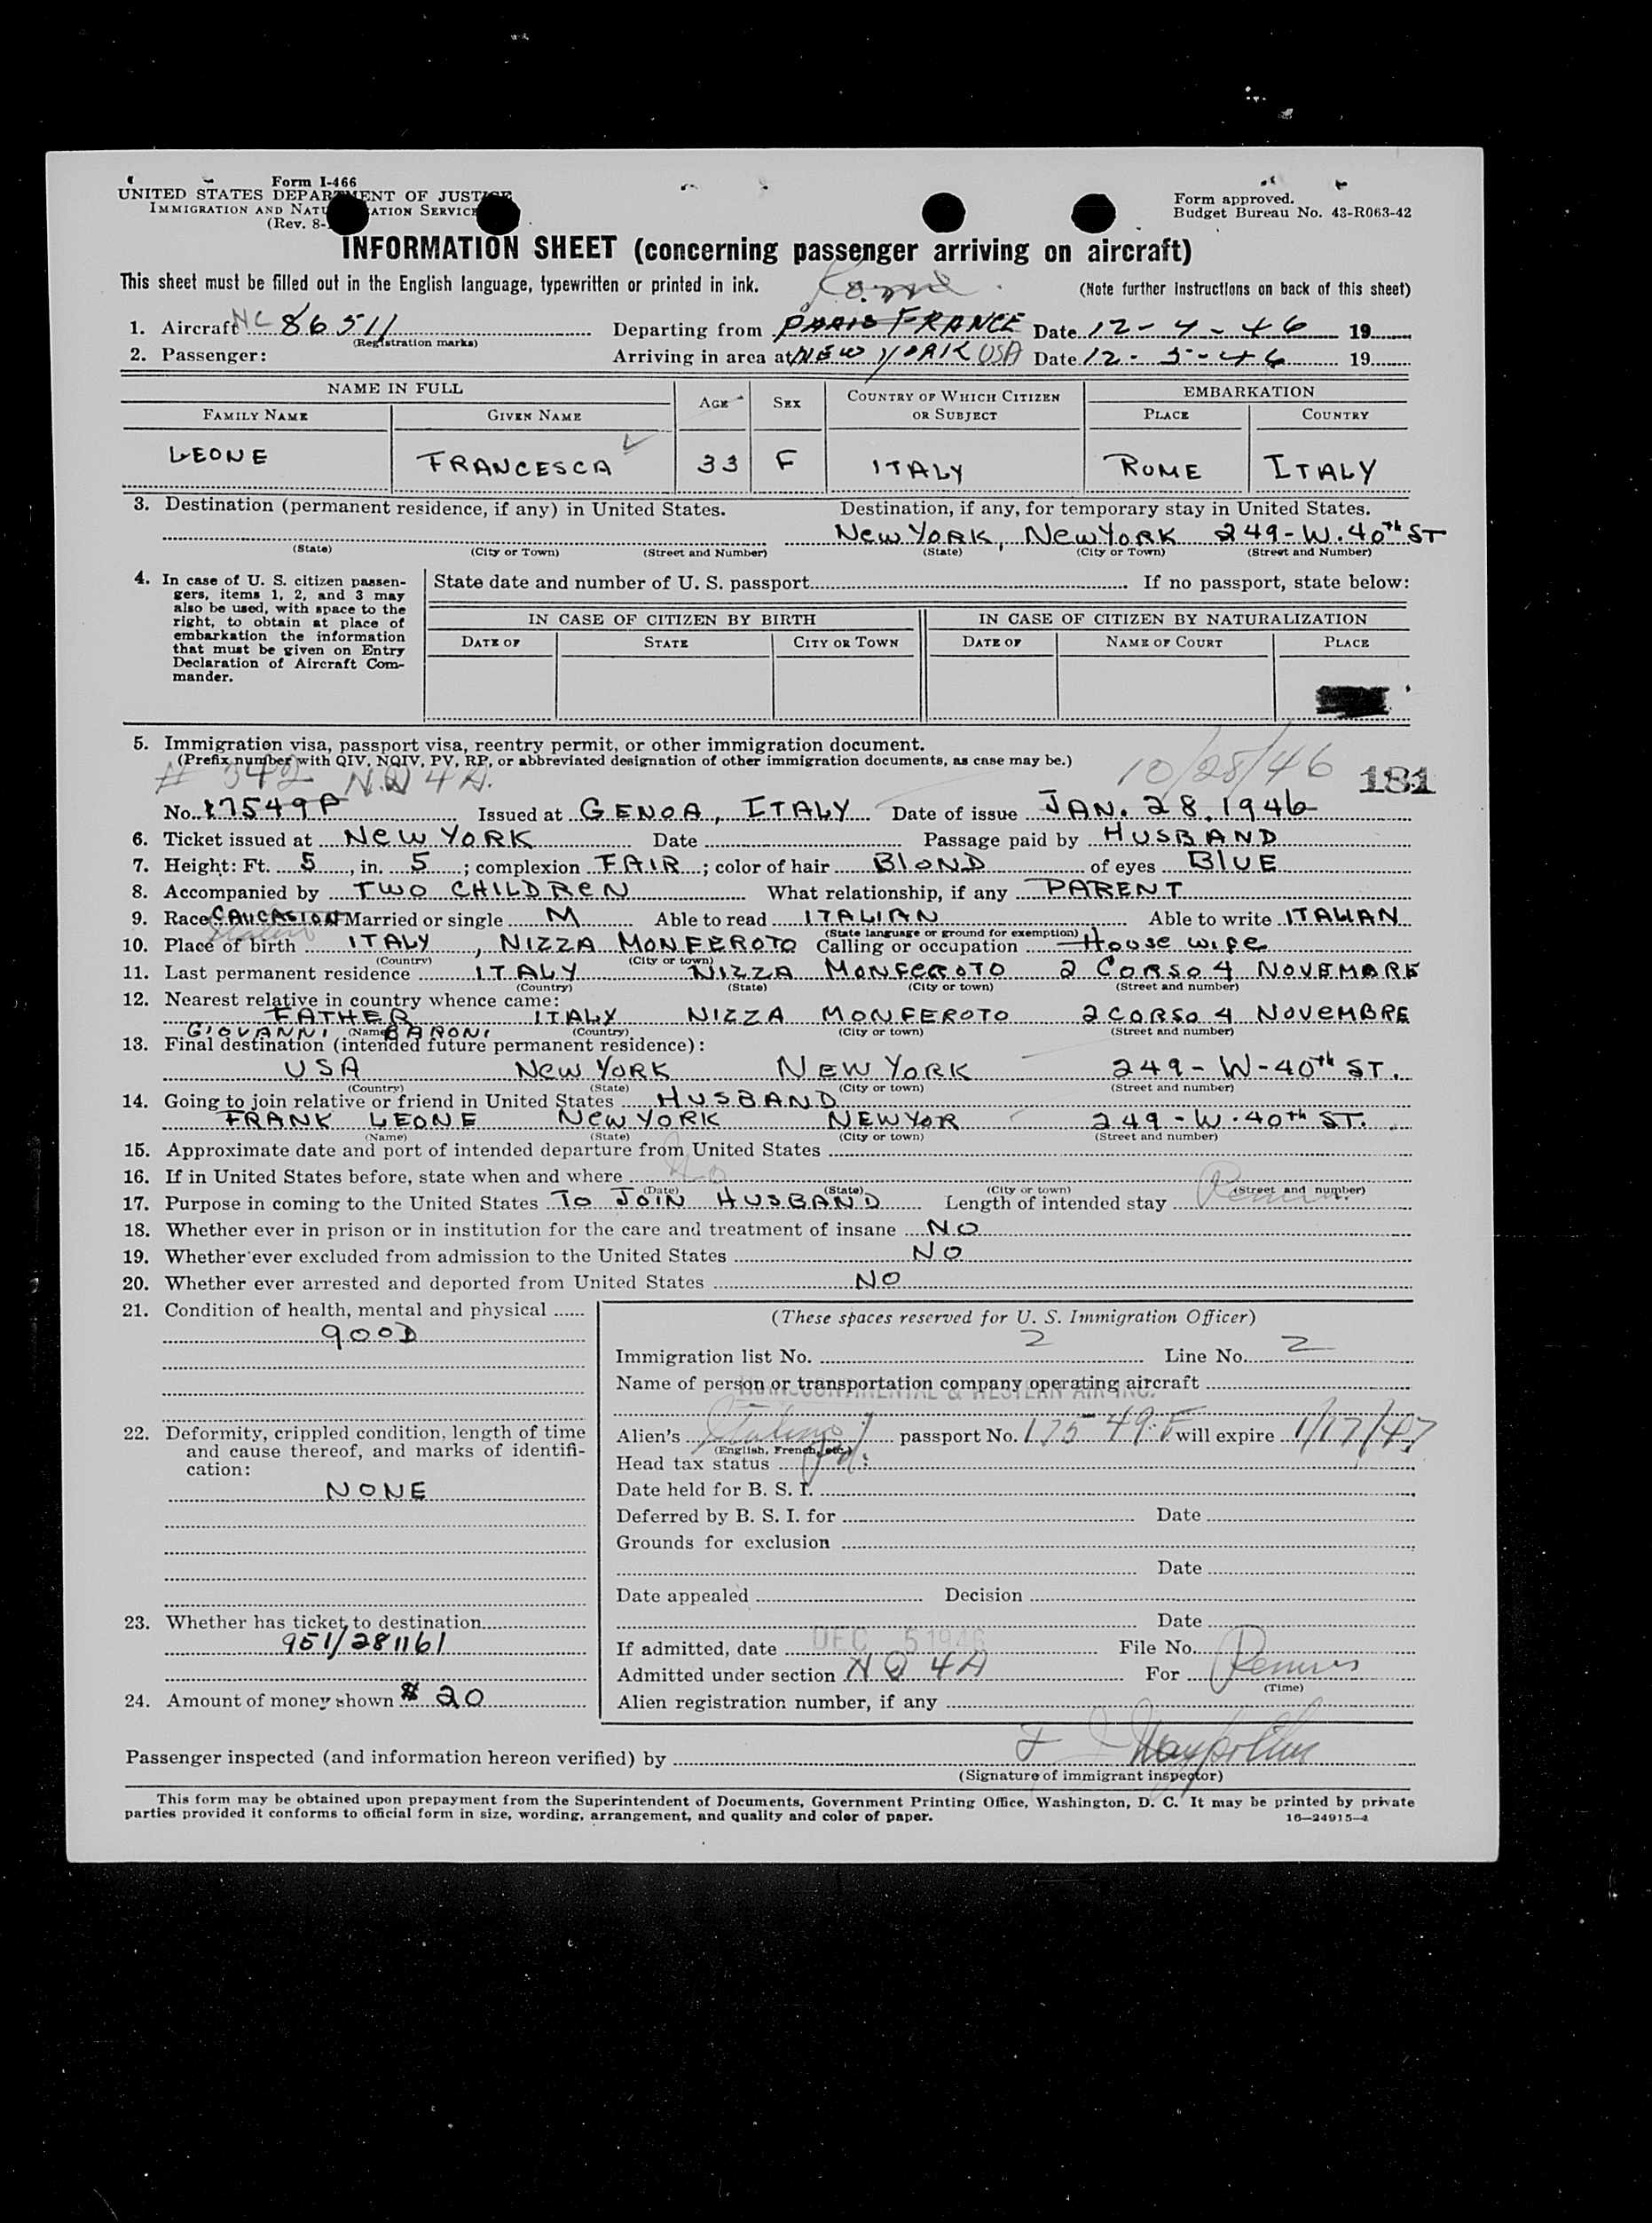 Form I-466
UNITED STATES DEPARTMENT OF JUSTICE
IMMIGRATION AND NATURALIZATION SERVICE
(Rev. 8-
Form approved.
Budget Bureau No. 43-R063-42
INFORMATION SHEET (concerning passenger arriving on aircraft)
This sheet must be filled out in the English language, typewritten or printed in ink. Rome (Note further instructions on back of this sheet)
1. Aircraft NC 86511 Departing from PARIS FRANCE Date 12-4-46 19
(Registration marks)
2. Passenger: Arriving in area at NEW YORK USA Date 12-5-46 19
NAME IN FULL AGE SEX COUNTRY OF WHICH CITIZEN OR SUBJECT EMBARKATION
FAMILY NAME GIVEN NAME PLACE COUNTRY
LEONE FRANCESCA 33 F ITALY ROME ITALY
3. Destination (permanent residence, if any) in United States. Destination, if any, for temporary stay in United States.
NEW YORK, NEW YORK 249-W.40th ST
(State) (City or Town) (Street and Number) (State) (City or Town) (Street and Number)
4. In case of U. S. citizen passengers, items 1, 2, and 3 may also be used, with space to the right, to obtain at place of embarkation the information that must be given on Entry Declaration of Aircraft Commander.
State date and number of U. S. passport If no passport, state below:
IN CASE OF CITIZEN BY BIRTH IN CASE OF CITIZEN BY NATURALIZATION
DATE OF STATE CITY OR TOWN DATE OF NAME OF COURT PLACE
5. Immigration visa, passport visa, reentry permit, or other immigration document.
(Prefix number with QIV, NQIV, PV, RP, or abbreviated designation of other immigration documents, as case may be.)
# 342 N.Q 4A. 10/28/46 181
No. 17549P Issued at GENOA, ITALY Date of issue JAN. 28, 1946
6. Ticket issued at NEW YORK Date Passage paid by HUSBAND
7. Height: Ft. 5, in. 5; complexion FAIR; color of hair BLOND of eyes BLUE
8. Accompanied by TWO CHILDREN What relationship, if any PARENT
9. Race CAUCASION Married or single M Able to read ITALIAN Able to write ITALIAN
(State language or ground for exemption)
10. Place of birth ITALY, NIZZA MONFEROTO Calling or occupation HOUSE WIFE
(Country) (City or town)
11. Last permanent residence ITALY NIZZA MONFEROTO 2 CORSO 4 NOVEMARE
(Country) (State) (City or town) (Street and number)
12. Nearest relative in country whence came:
FATHER ITALY NIZZA MONFEROTO 2 CORSO 4 NOVEMBRE
GIOVANNI BARONI (Name) (Country) (City or town) (Street and number)
13. Final destination (intended future permanent residence):
USA NEW YORK NEW YORK 249-W-40th ST.
(Country) (State) (City or town) (Street and number)
14. Going to join relative or friend in United States HUSBAND
FRANK LEONE NEW YORK NEW YOR 249-W.40th ST.
(Name) (State) (City or town) (Street and number)
15. Approximate date and port of intended departure from United States
16. If in United States before, state when and where No
(Date) (State) (City or town) (Street and number)
17. Purpose in coming to the United States TO JOIN HUSBAND Length of intended stay
18. Whether ever in prison or in institution for the care and treatment of insane NO
19. Whether ever excluded from admission to the United States NO
20. Whether ever arrested and deported from United States NO
21. Condition of health, mental and physical
GOOD
(These spaces reserved for U. S. Immigration Officer)
Immigration list No. 2 Line No. 2
Name of person or transportation company operating aircraft
TRANSCONTINENTAL & WESTERN AIR INC.
22. Deformity, crippled condition, length of time and cause thereof, and marks of identification:
NONE
Alien's Italian passport No. 17549.F will expire 1/17/47
(English, French, etc.)
Head tax status Pd.
Date held for B. S. I.
Deferred by B. S. I. for Date
Grounds for exclusion
Date
Date appealed Decision
Date
23. Whether has ticket to destination
951/281161
If admitted, date DEC 5 1946 File No.
Admitted under section NQ 4A For
(Time)
24. Amount of money shown $20
Alien registration number, if any
Passenger inspected (and information hereon verified) by
(Signature of immigrant inspector)
This form may be obtained upon prepayment from the Superintendent of Documents, Government Printing Office, Washington, D. C. It may be printed by private
parties provided it conforms to official form in size, wording, arrangement, and quality and color of paper.
16—24915-4